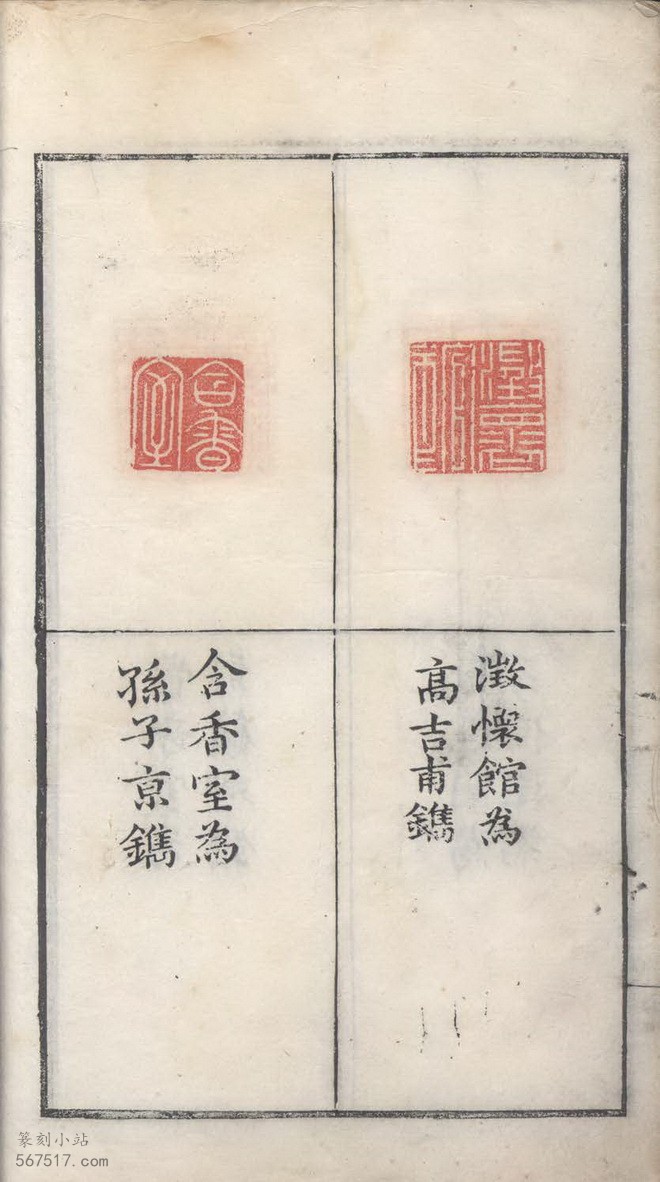 澂懷館
澂懷館為
高吉甫鐫
含香室
含香室為
孫子京鐫
篆刻小站
567517.com